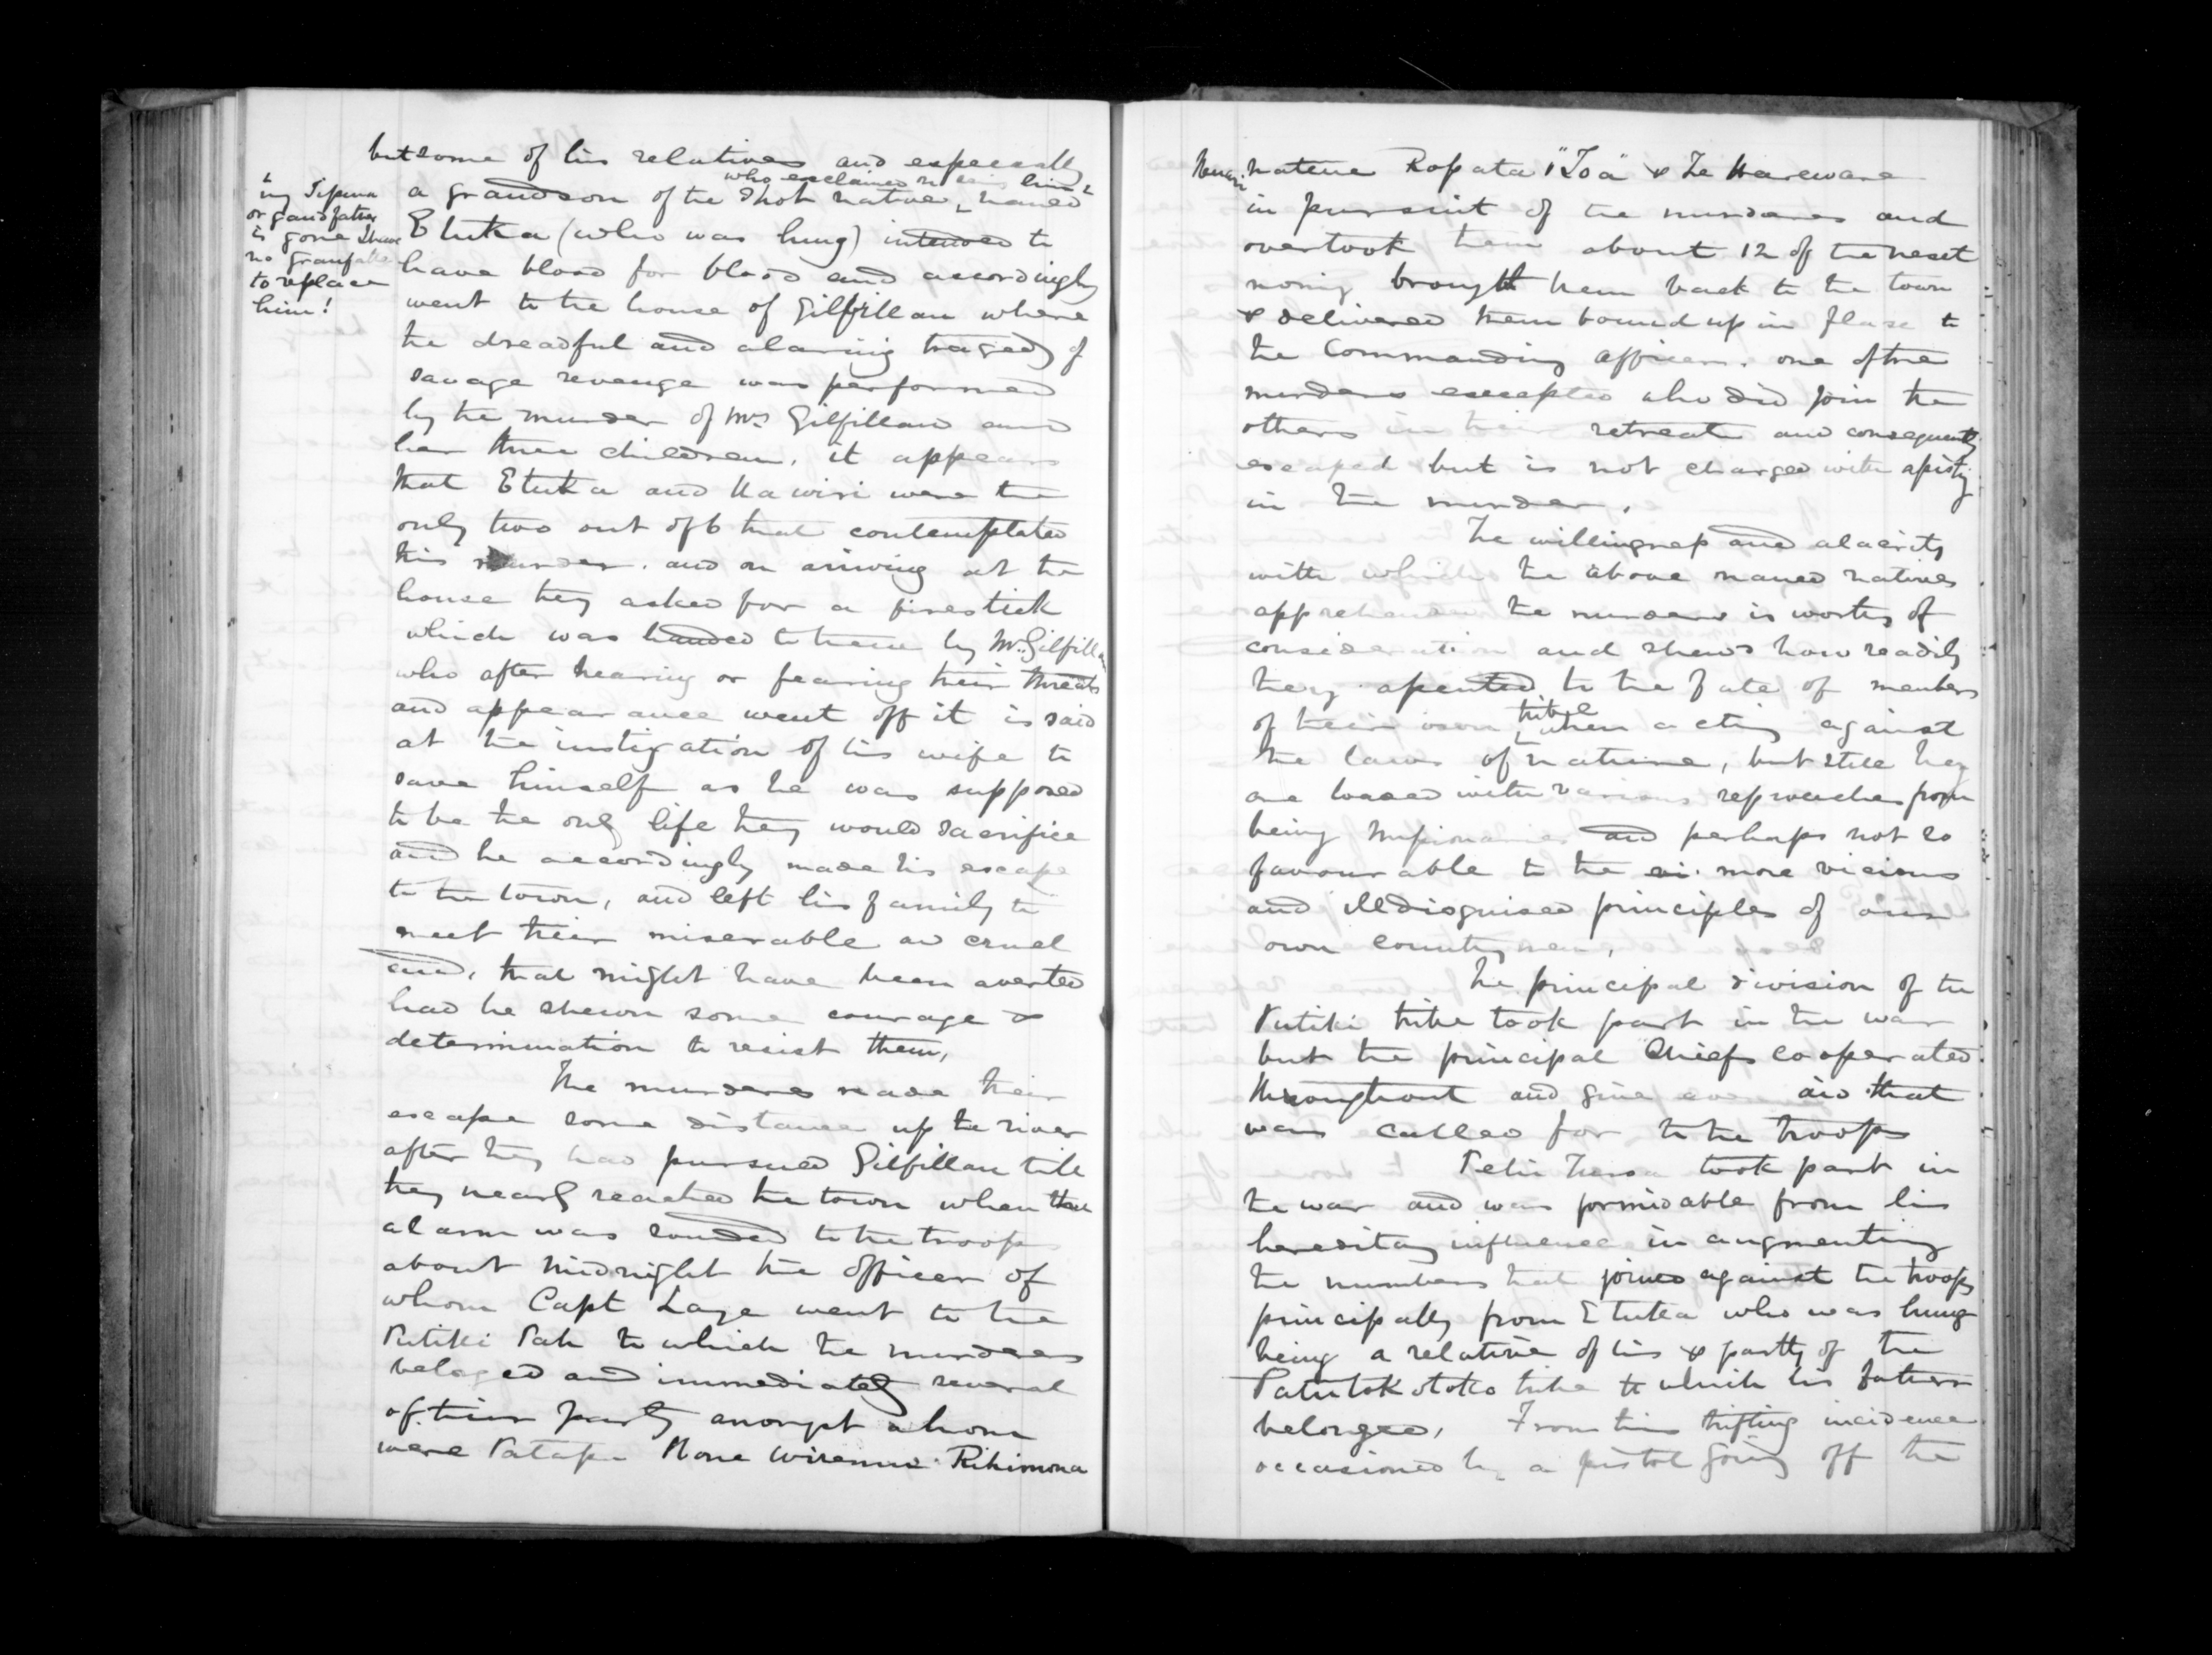 but some of his relatives and especially
who exclaimed
a grandson of the shot native, named
Etuka (who was hung) intended to
have blood for blood and accordingly
went to the house of Gilfillan where
the dreadful and alarming tragedy of
savage revenge was performed
by the murder of Mrs Gilfillan and
her three children, it appears
that Etuka and Kawiri were the
only two out of 6 that contemplated
this murder. and on arriving at the
house they asked for a firestick
which was handed to them by Mr. Gilfillan
who after hearing or fearing their threats
and appearance went off it is said
at the instigation of his wife to
save himself as he was supposed
to be the only life they would sacrifice
and he accordingly made his escape
to the town, and left his family to
meet their miserable and cruel
end, that might have been averted
had he shewn some courage &
determination to resist them,
The murderers made their
escape some distance up the river
after they had pursued Gilfillan till
they nearly reached the town when the
alarm was sounded to the troops
about midnight the officer of
whom Capt Laye went to the
Putiki Pah to which the murderers
belonged and immediately several
of their party amongst whom
were Hone Wiremu Rihimona
my Tipuna
or grandfather
is gone I have
no granfather
to replace
him!
natene Ropata "Toa" & Te Hareware
in pursuit of the murderers and
overtook them about 12 of the next
morng brought them back to the town
& delivered them bound up in flax to
the Commanding Officer. one of the
murders excepted who did join the
others in their retreat and consequently
escaped but is not charged with assistg
in the murder.
The willingness and alacrity
with which the above named natives
apprehended the murders is worthy of
consideration and shews how readily
they assented to the fate of members
of their own tribe when acting against
the laws of nature, but still they
are loaded with various reproaches from
being Missionaries and perhaps not so
favourable to the vi. more vicious
and illdisguised principles of our
own countrymen,
The principal division of the
Putiki tribe took part in the war
but the principal Chiefs cooperated
throughout and give every aid that
was called for to the troops
took part in
the war and was formidable from his
hereditary influence in augmenting
the numbers that joined against the troops
principally from Etuka who was hung
being a relative of his & partly of the
Patutokotoko tribe to which his father
belonged, From this trifling incidence
occasioned by a pistol going off the